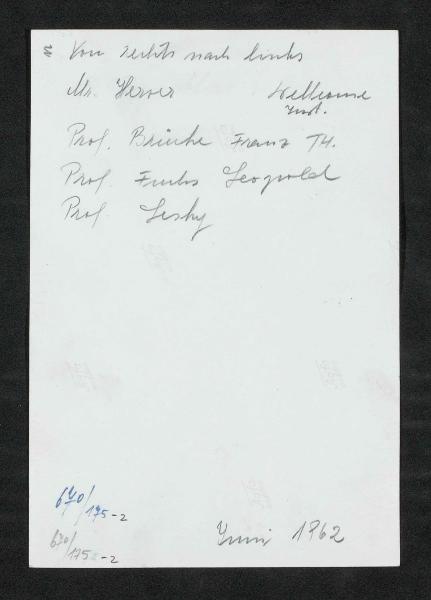 Von rechts nach links
Mr. Herver Wellcome
Inst.
Prof. Brücke Franz Th.
Prof. Fuchs Leopold
Prof. Lesky
670/175-2
670/175-2
Juni 1962